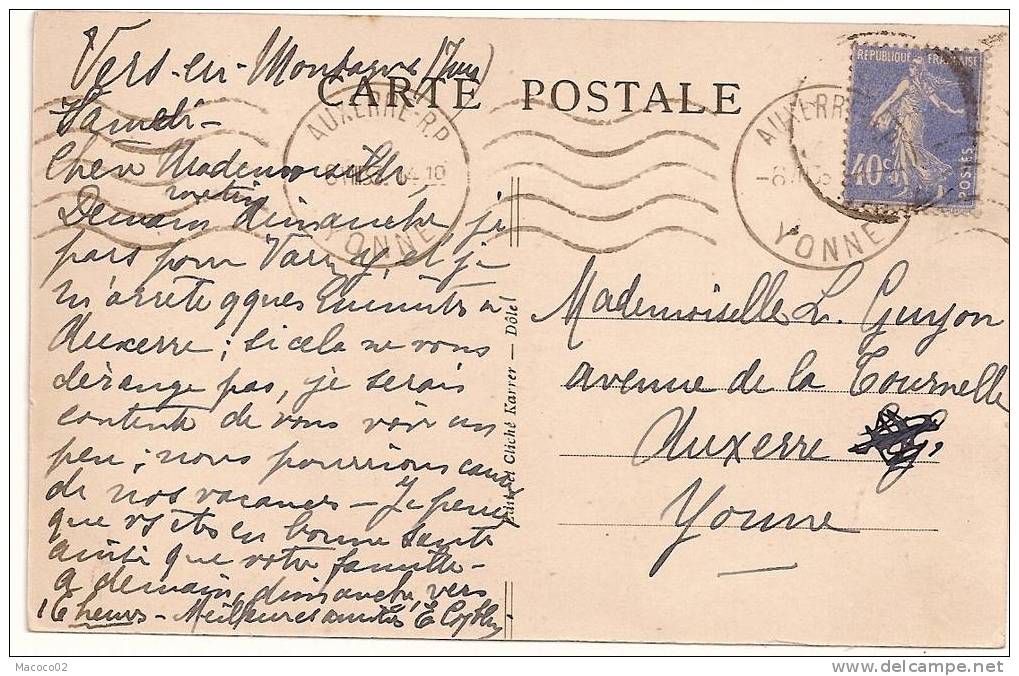 Vers-en-Montagne (Jura)
CARTE POSTALE
Samedi -
Chère Mademoiselle,
matin
Demain dimanche je
pars pour Varzy, et je
m'arrête qques minutes à
Auxerre; si cela ne vous
dérange pas, je serais
contente de vous voir un
peu; nous pourrions causer
de nos vacances - Je pense
que vs êtes en bonne santé
ainsi que votre famille -
A demain, dimanche, vers
16 heures - Meilleures amitiés E.
Cliché Karrer — Dôle
AUXERRE-R.P.
YONNE
AUXERRE
YONNE
REPUBLIQUE FRANÇAISE
40c
POSTES
Mademoiselle L. Guyon
avenue de la Tournelle
Auxerre
Yonne
Macoco02
www.delcampe.net